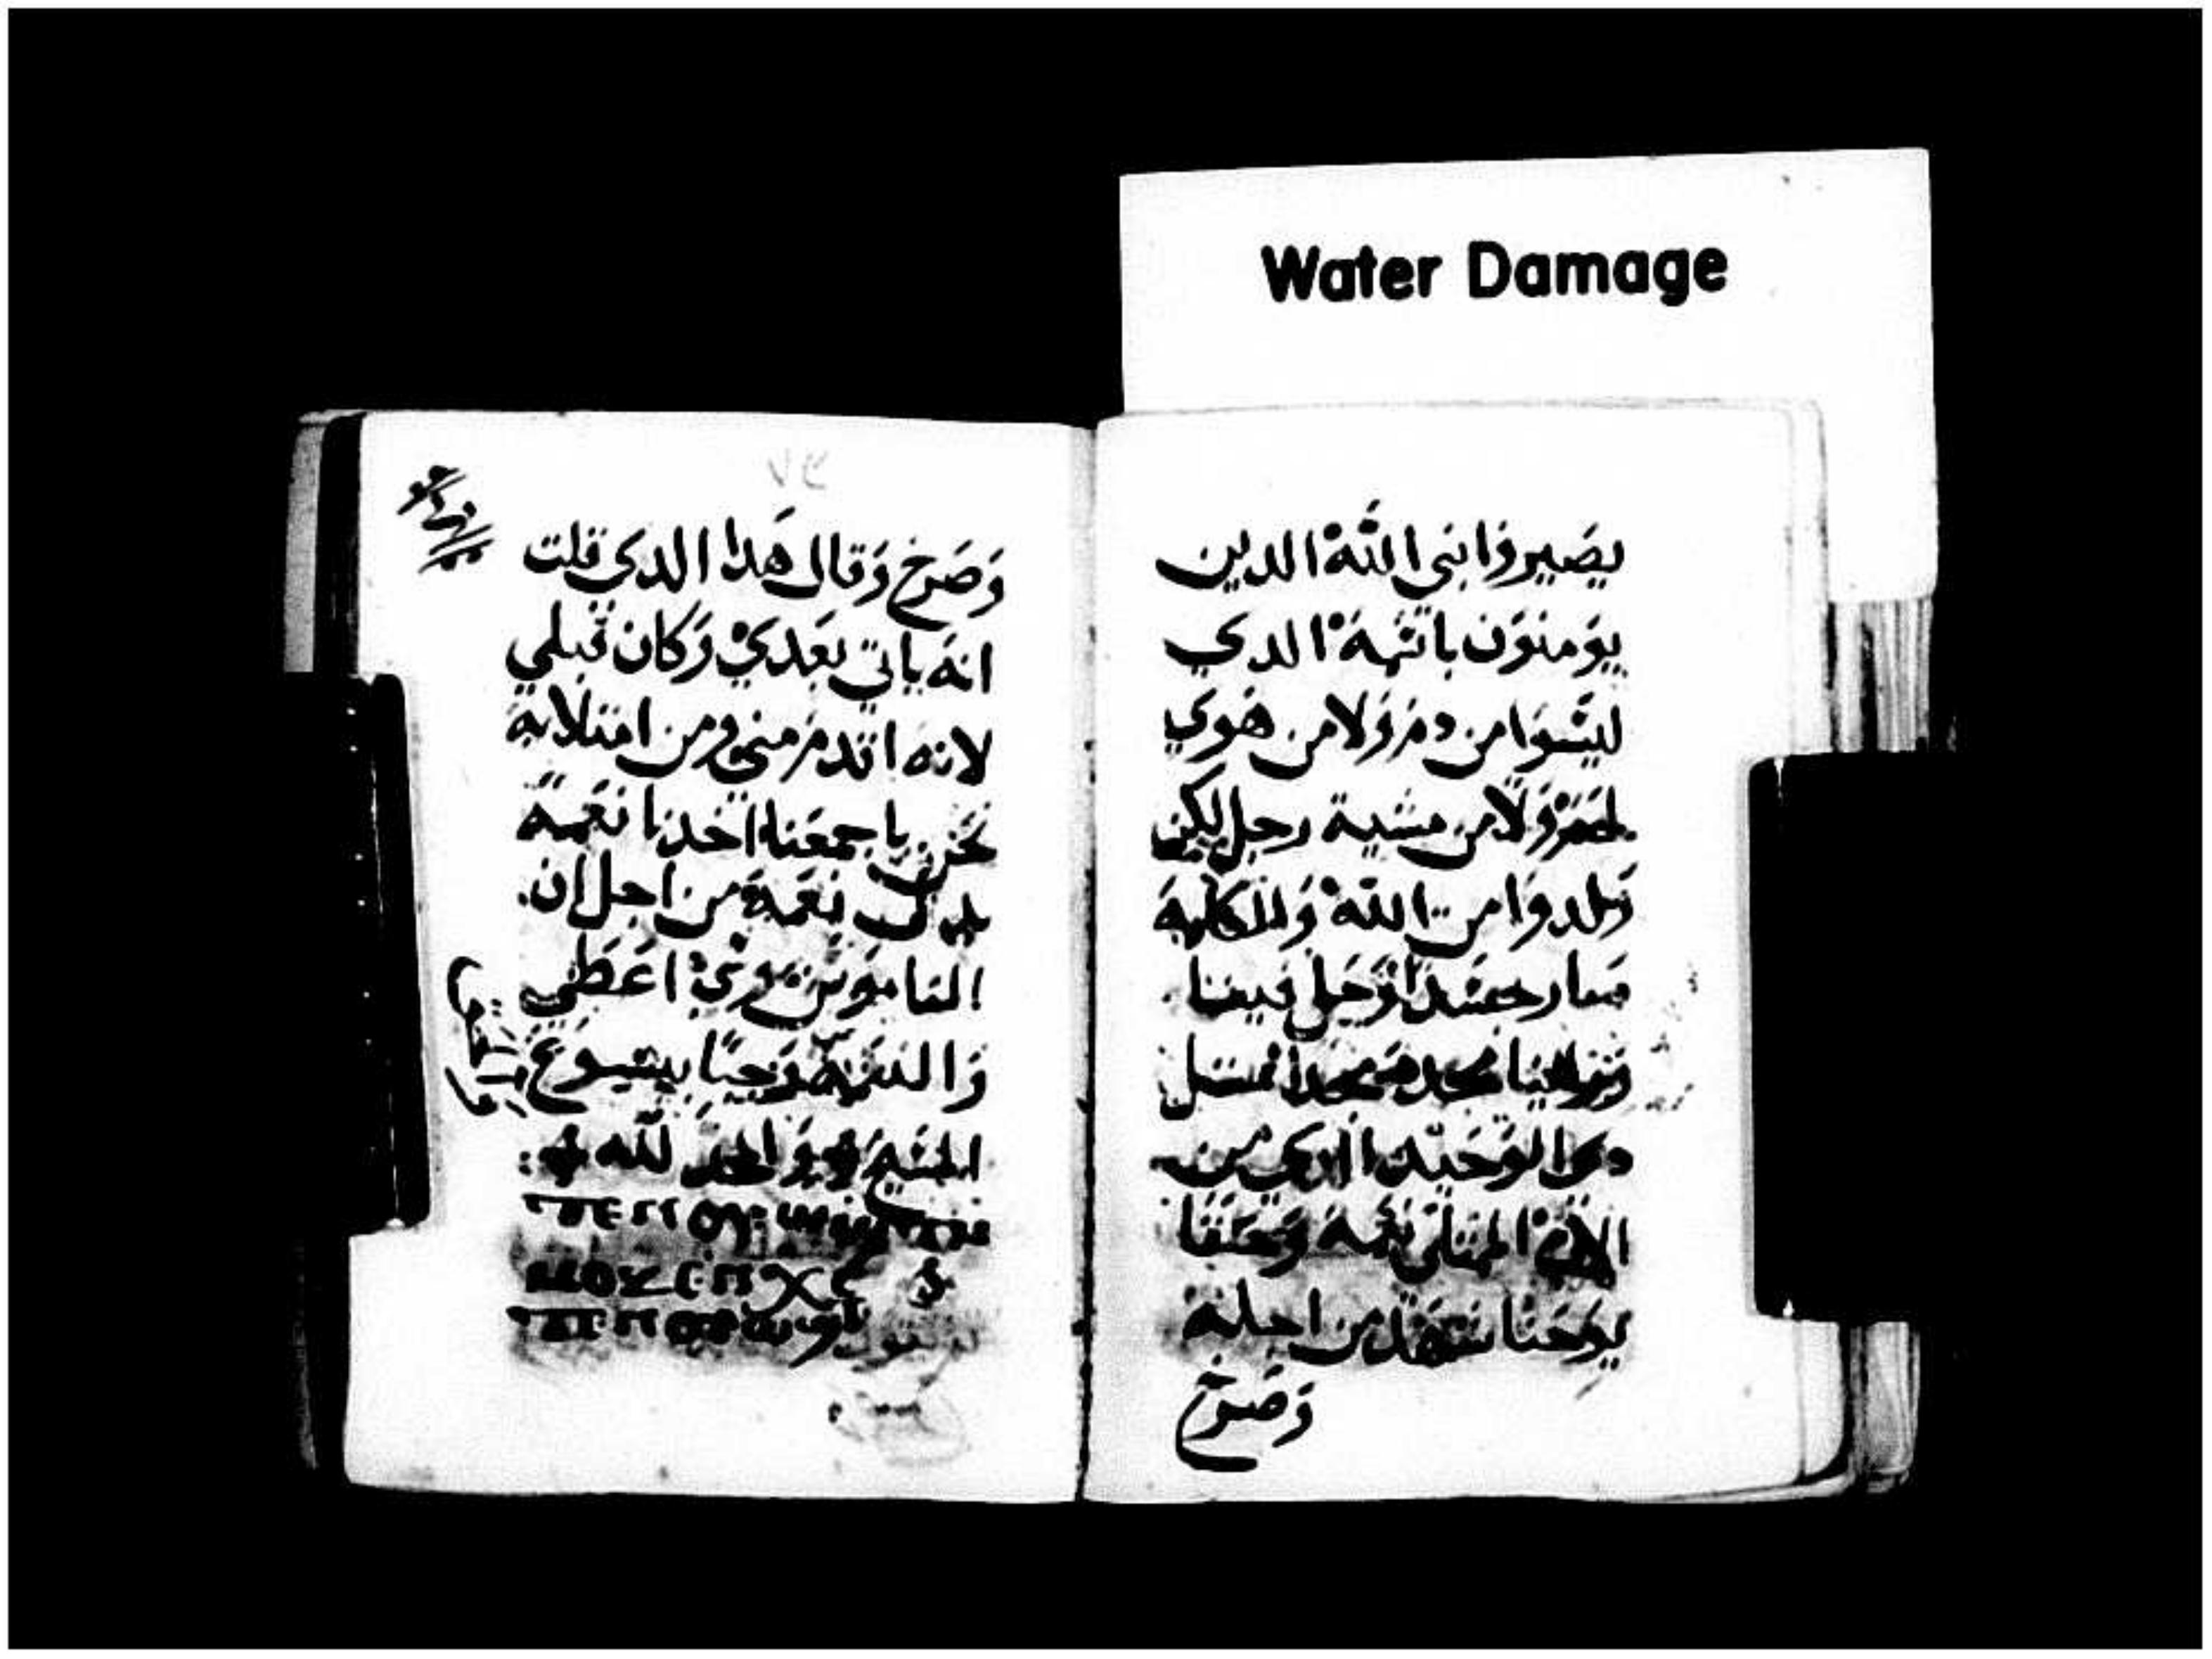 Water Damage
يصيروا بني الله الدين
يومنون باسمه الدي
ليسوا من دم ولا من هوي
لحم ولا من مشية رجل لكن
ولدوا من الله والكلمة
صار جسدا وحل فينا
وراينا مجده مجدا مثل
الوحيد الدي من
الاب الممتلي نعمة وحقا
يوحنا شهد من اجله
وصرخ
٧٣
وصرخ وقال هدا الدي قلت
انه ياتي بعدي وكان قبلي
لانه اقدم مني ومن امتلايه
نحن باجمعنا اخدنا نعمة
بدل نعمة من اجل ان
الناموس بموسي اعطي
والنعمة بيسوع
المسيح والمجد لله